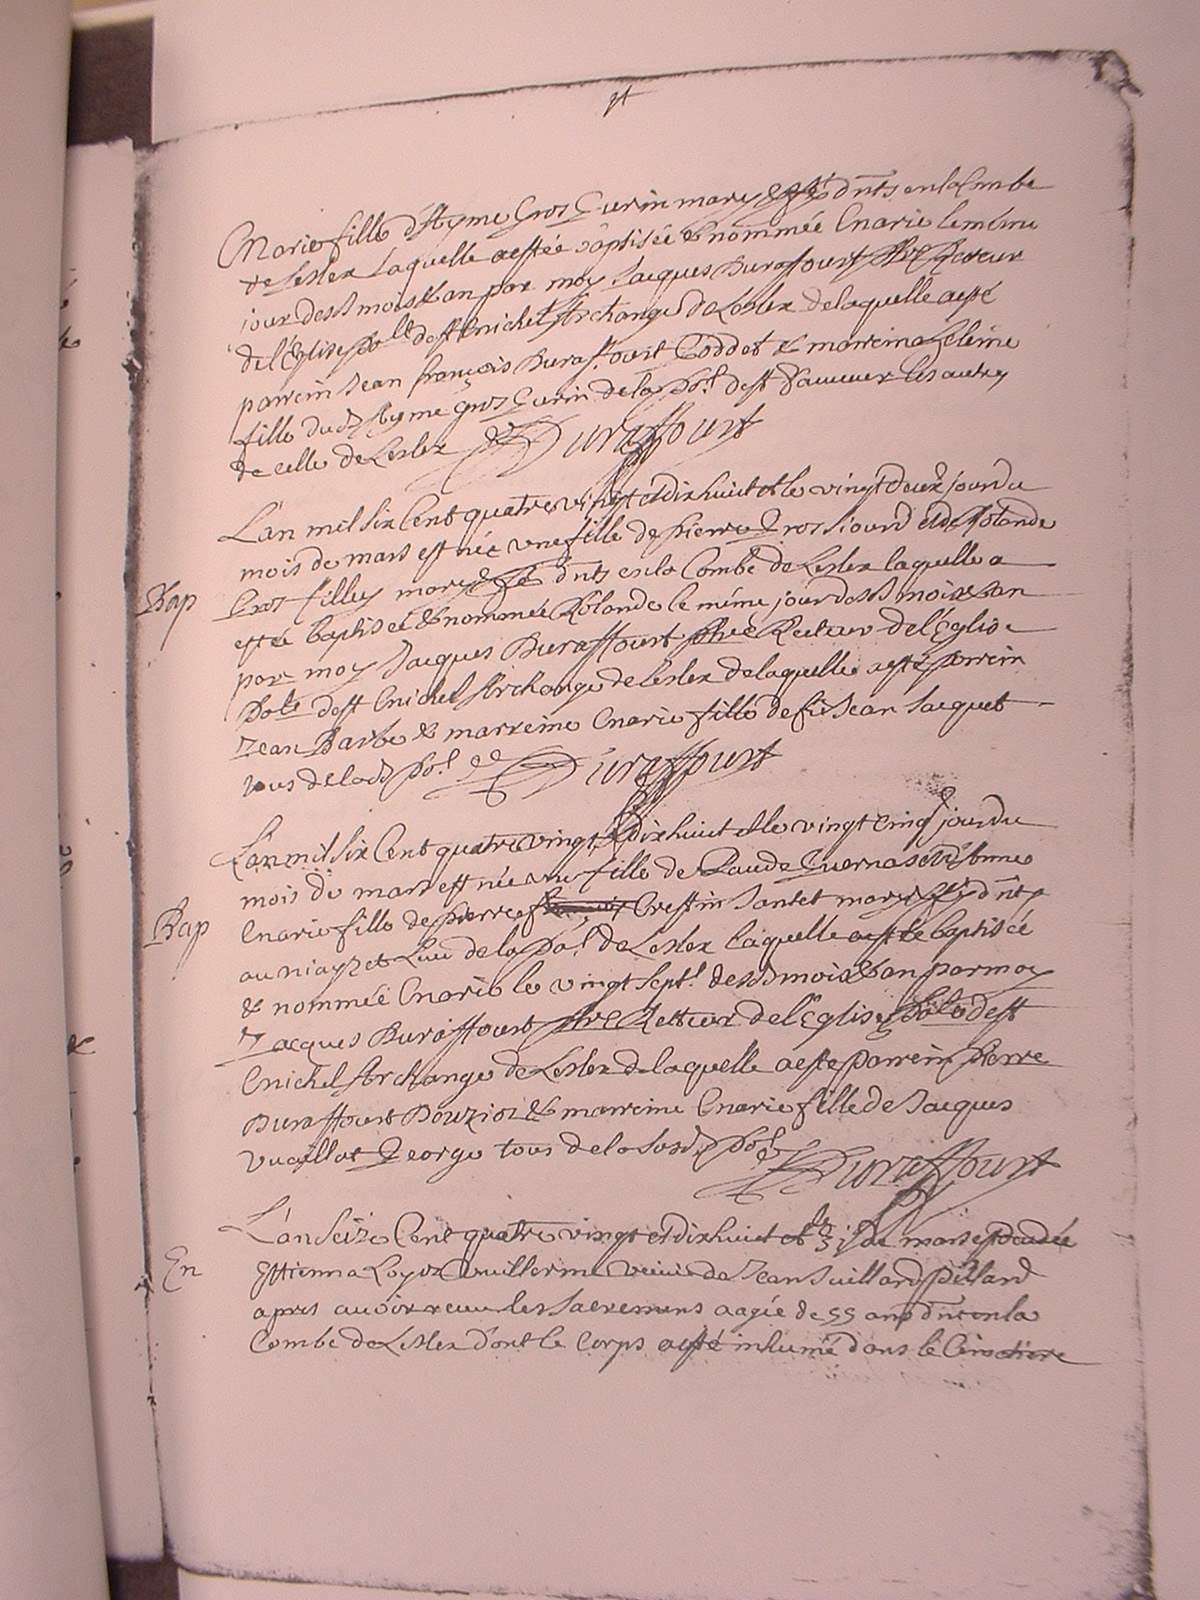 Marie fille d'Ayme Gros Gurin maryes dnts en la Combe
de Leslex laquelle a esté baptisée & nommée Marie le même
jour desd mois & an par moy Jacques Buraffourt pbre Recteur
de l'Eglise po.lle de st Michel Archange de Leslex de laquelle a esté
parrein Jean françois Buraffourt Goddet & marreina Heleine
fille dud Ayme Gros Gurin de la po.l de st les autres
de celle de Leslex Buraffourt
L'an mil six Cent quatre vingt et dix huict et le vingt deux jour du
mois de mars est née une fille de pierre Grossiourd et de Rolande
Bap Gros filley maryes dnts en la Combe de Leslex laquelle a
esté baptisée & nommée Rolande le même jour desd mois & an
par moy Jacques Buraffourt pbre Recteur de l'Eglise
po.lle de st Michel Archange de Leslex de laquelle a esté parrein
Jean Barbe & marreine Marie fille de fû Jean Jacquet
tous de lad po.l Buraffourt
L'an mil six Cent quatre vingt & dix huict et le vingt cinq jour du
mois de mars est née une fille de Claude Guerna
Bap Marie fille de pierre Crestin Santet maryes dnts
au niayzet Lieu de la po.l de Leslex laquelle a esté baptisée
& nommée Marie le vingt sept.e desd mois & an par moy
Jacques Buraffourt pbre Recteur de l'Eglise po.lle de st
Michel Archange de Leslex de laquelle a esté parrein pierre
Buraffourt Bouzioz & marreine Marie fille de Jacques
Vuaillat George tous de la susd po.l Buraffourt
L'an Seize Cent quatre vingt et dix huict et le 31 de mars est decedée
En Estienna Loyoz Vuillerme veuve de Jean Juillard pillard
apres avoir receu les sacremens aagée de 55 ans dnt en la
Combe de Leslex dont le corps a esté inhumé dans le Cimetiere